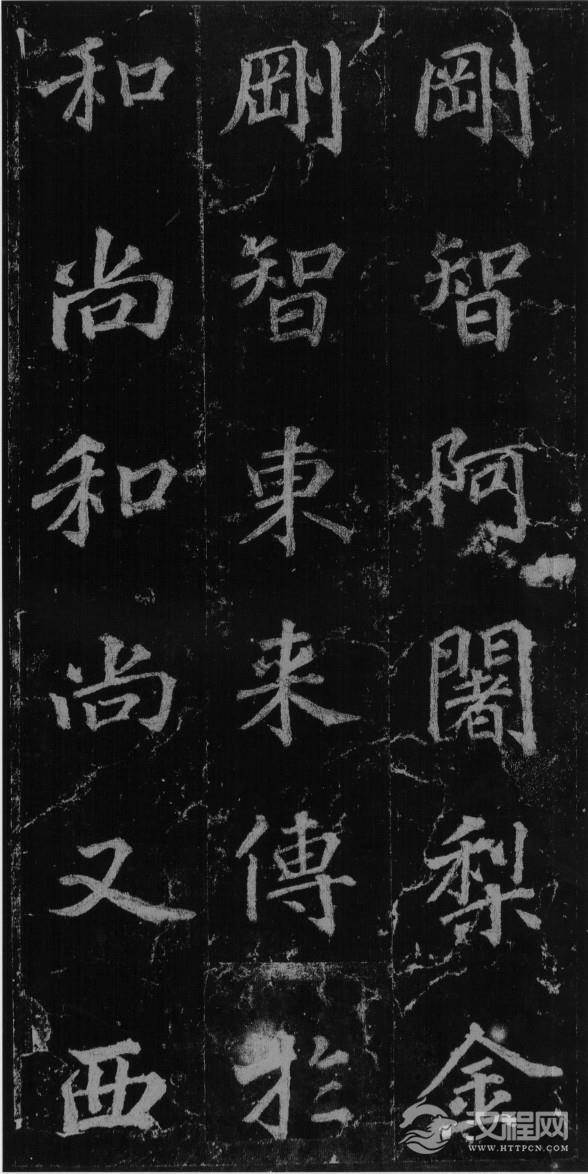 剛智阿闍梨金
剛智東来傳於
和尚和尚又西
汉程网
WWW.HTTPCN.COM